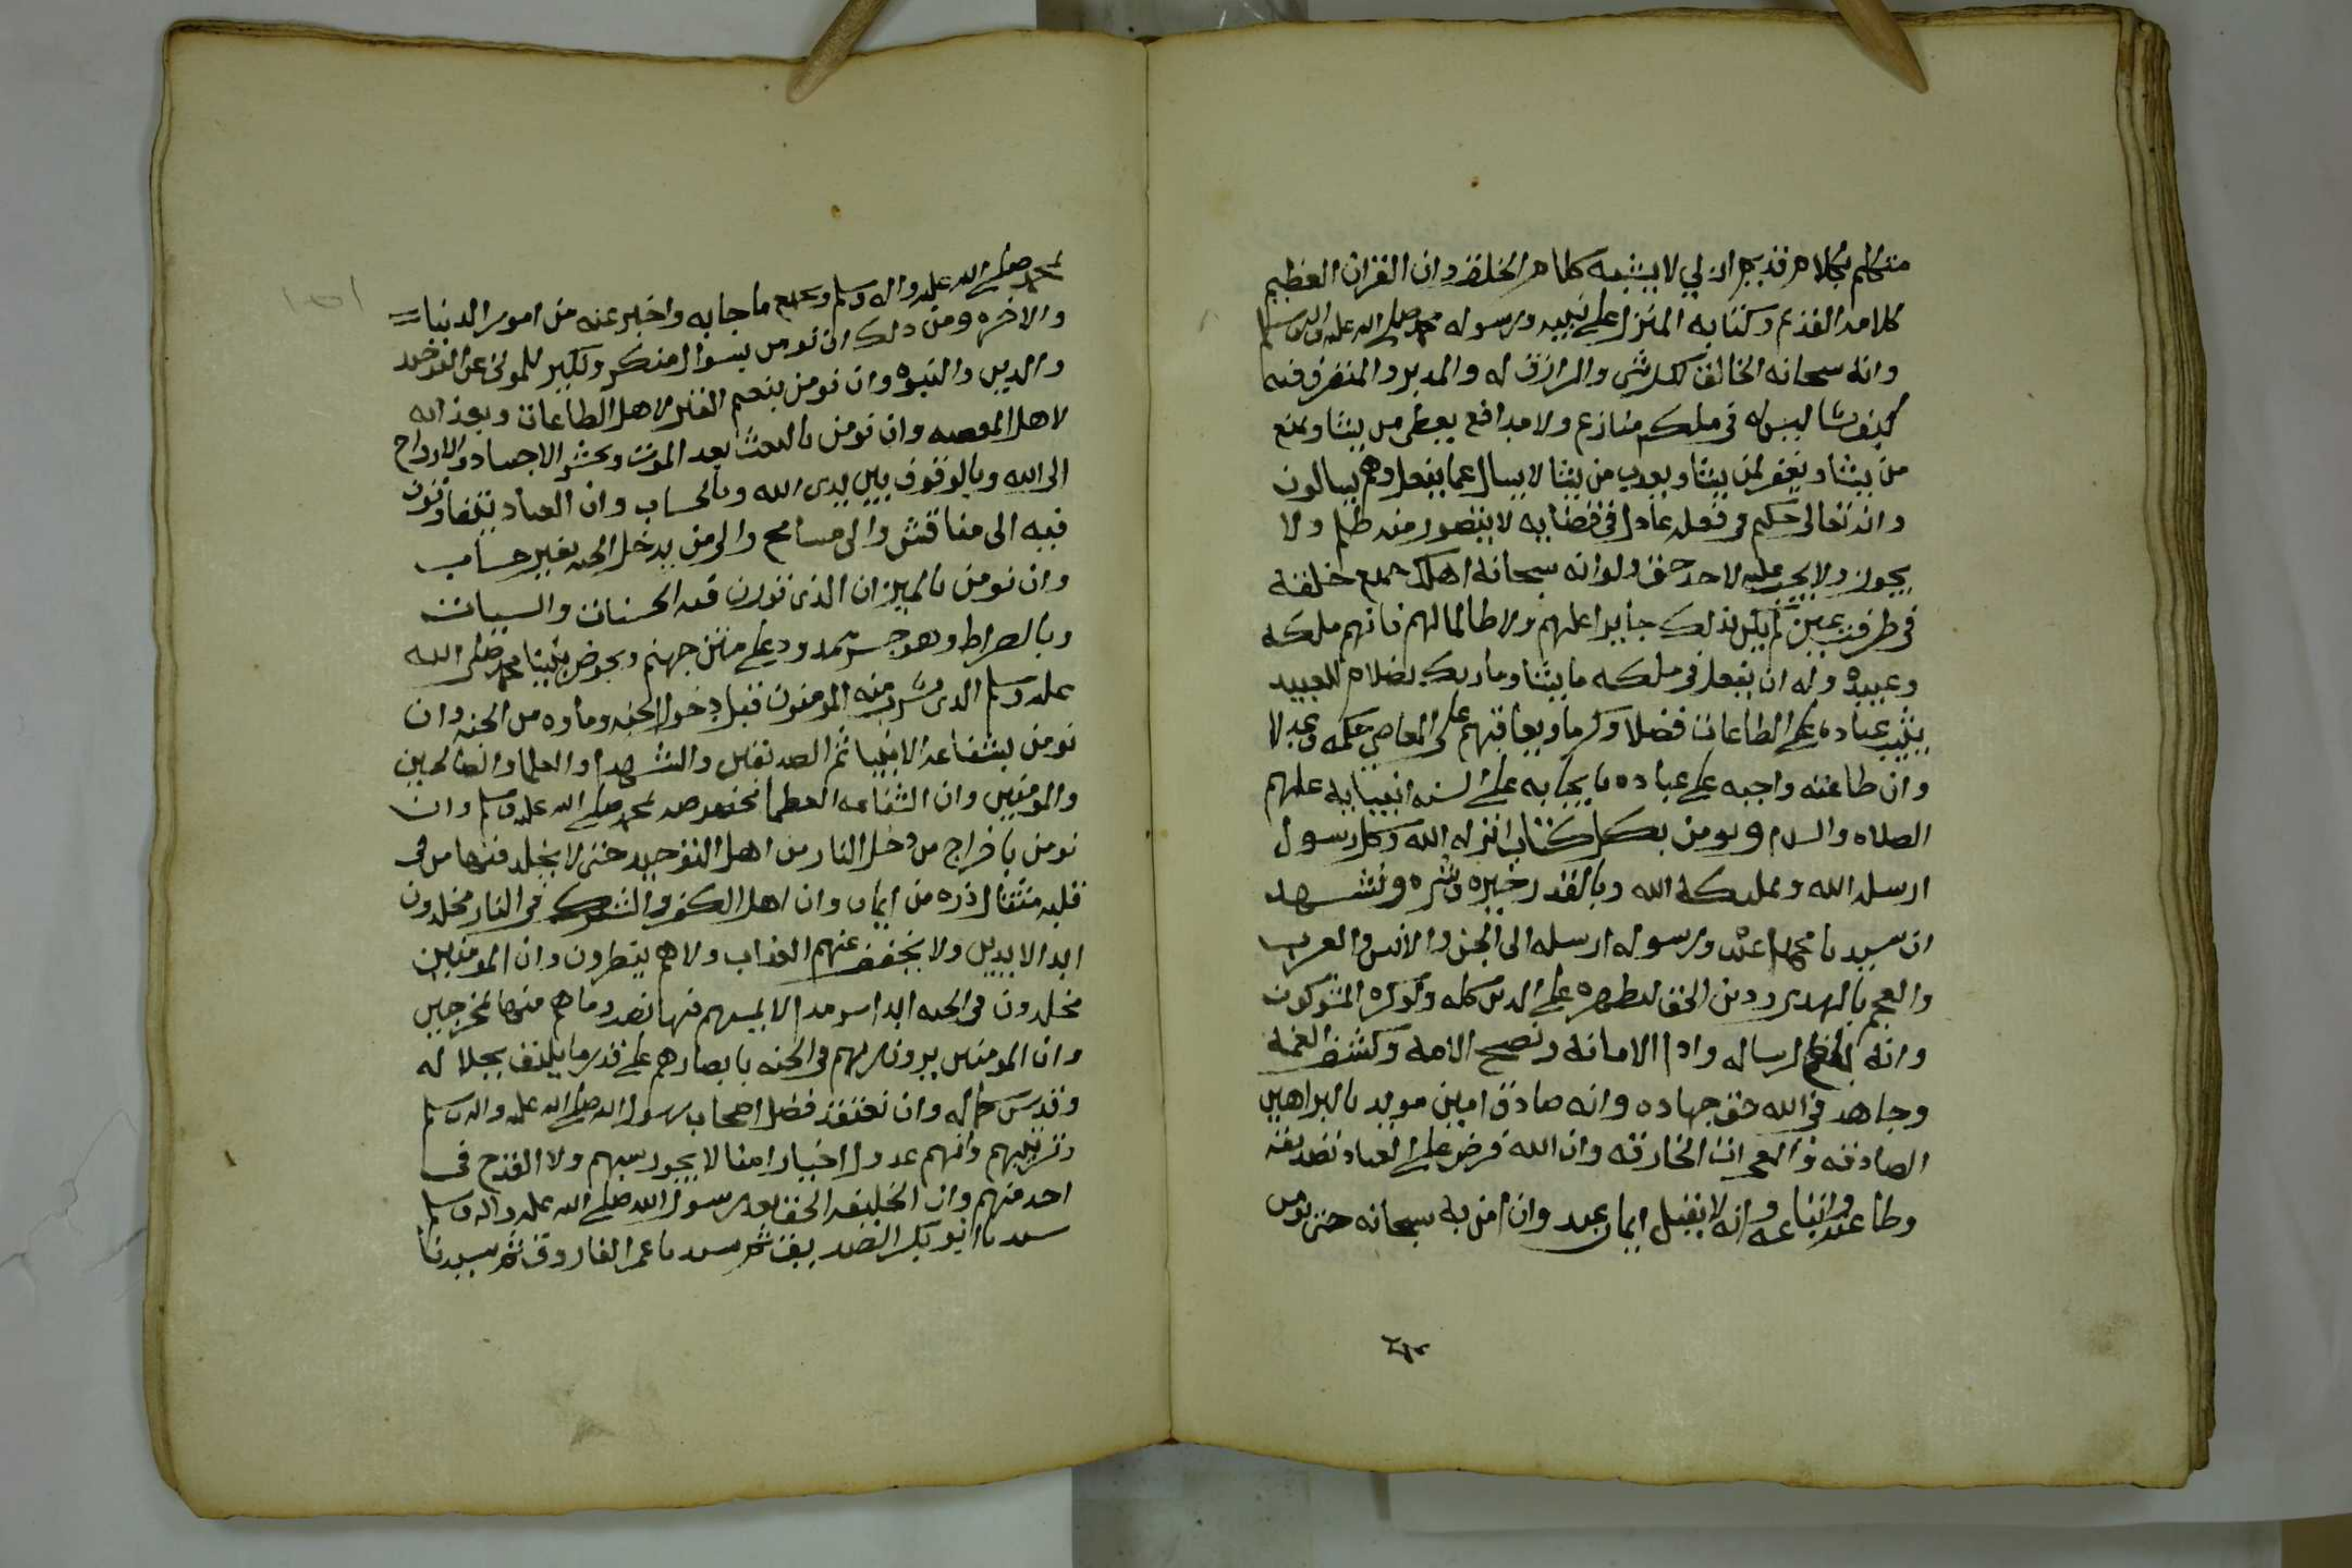 متكلم بكلام قديم ازلي لا يشبه كلام الخلق وان القران العظيم
كلامه القديم وكتابه المنزل على نبيه ورسوله محمد صلى الله عليه واله وسلم
وانه سبحانه الخالق لكل شي والرازق له والمدبر والمتصرف فيه
كيف يشا ليس له في ملكه منازع ولا مدافع يعطي من يشا ويمنع
من يشا ويغفر لمن يشا ويعذب من يشا لا يسال عما يفعل وهم يسالون
وانه تعالى حكيم في فعله عادل في قضايه لا يتصور منه ظلم ولا
يجور ولا يجب عليه لاحد حق ولو انه سبحانه اهلك جميع خلقه
في طرفة عين لم يكن بذلك جايرا عليهم ولا ظالما لهم فانهم ملكه
وعبيده وله ان يفعل في ملكه ما يشا وما ربك بظلام للعبيد
يثيب عباده على الطاعات فضلا وكرما ويعاقبهم على المعاصي حكمة وعدلا
وان طاعته واجبه على عباده بايجابه على السنه انبيايه عليهم
الصلاه والسلام ونومن بكل كتاب انزله الله وكل رسول
ارسله الله وبملايكة الله وبالقدر خيره وشره ونشهد
ان سيدنا محمدا عبده ورسوله ارسله الى الجن والانس والعرب
والعجم بالهدى ودين الحق ليظهره على الدين كله ولو كره المشركون
وانه بلغ الرساله وادا الامانة ونصح الامة وكشف الغمة
وجاهد في الله حق جهاده وانه صادق امين مويد بالبراهين
الصادقه والمعجزات الخارقه وان الله فرض على العباد تصديقه
وطاعته واتباعه وانه لا يقبل ايمان عبد وان امن به سبحانه حتى يومن
بمحمد صلى الله عليه واله وسلم وبجميع ما جا به واخبر عنه من امور الدنيا
والاخره ومن ذلك ان نومن بسوال منكر ونكير للموتى عن التوحيد
والدين والنبوه وان نومن بنعيم القبر لاهل الطاعات وبعذابه
لاهل المعصيه وان نومن بالبعث بعد الموت وبحشر الاجساد والارواح
الى الله وبالوقوف بين يدي الله وبالحساب وان العباد يتفاوتون
فيه الى مناقش والى مسامح والى من يدخل الجنه بغير حساب
وان نومن بالميزان الذي توزن فيه الحسنات والسيات
وبالصراط وهو جسر ممدود على متن جهنم وبحوض نبينا محمد صلى الله
عليه وسلم الذي يشرب منه المومنون قبل دخول الجنه وماوه من الجنه وان
نومن بشفاعه الانبيا ثم الصديقين والشهدا والعلما والصالحين
والمومنين وان الشفاعه العظما مخصوصه بمحمد صلى الله عليه وسلم وان
نومن باخراج من دخل النار من اهل التوحيد حتى لا يخلد فيها من في
قلبه مثقال ذره من ايمان وان اهل الكفر والشرك في النار مخلدون
ابد الابدين ولا يخفف عنهم العذاب ولا هم ينظرون وان المومنين
مخلدون في الجنه ابدا سرمدا لا يمسهم فيها نصب وما هم منها بمخرجين
وان المومنين يرون ربهم في الجنه بابصارهم على قدر ما يليق بجلاله
وقدس كماله وان نعتقد فضل اصحاب رسول الله صلى الله عليه واله وسلم
وترتيبهم وانهم عدول اخيار امنا لا يجوز سبهم ولا القدح في
احد منهم وان الخليفه الحق بعد رسول الله صلى الله عليه واله وسلم
سيدنا ابو بكر الصديق ثم سيدنا عمر الفاروق ثم سيدنا